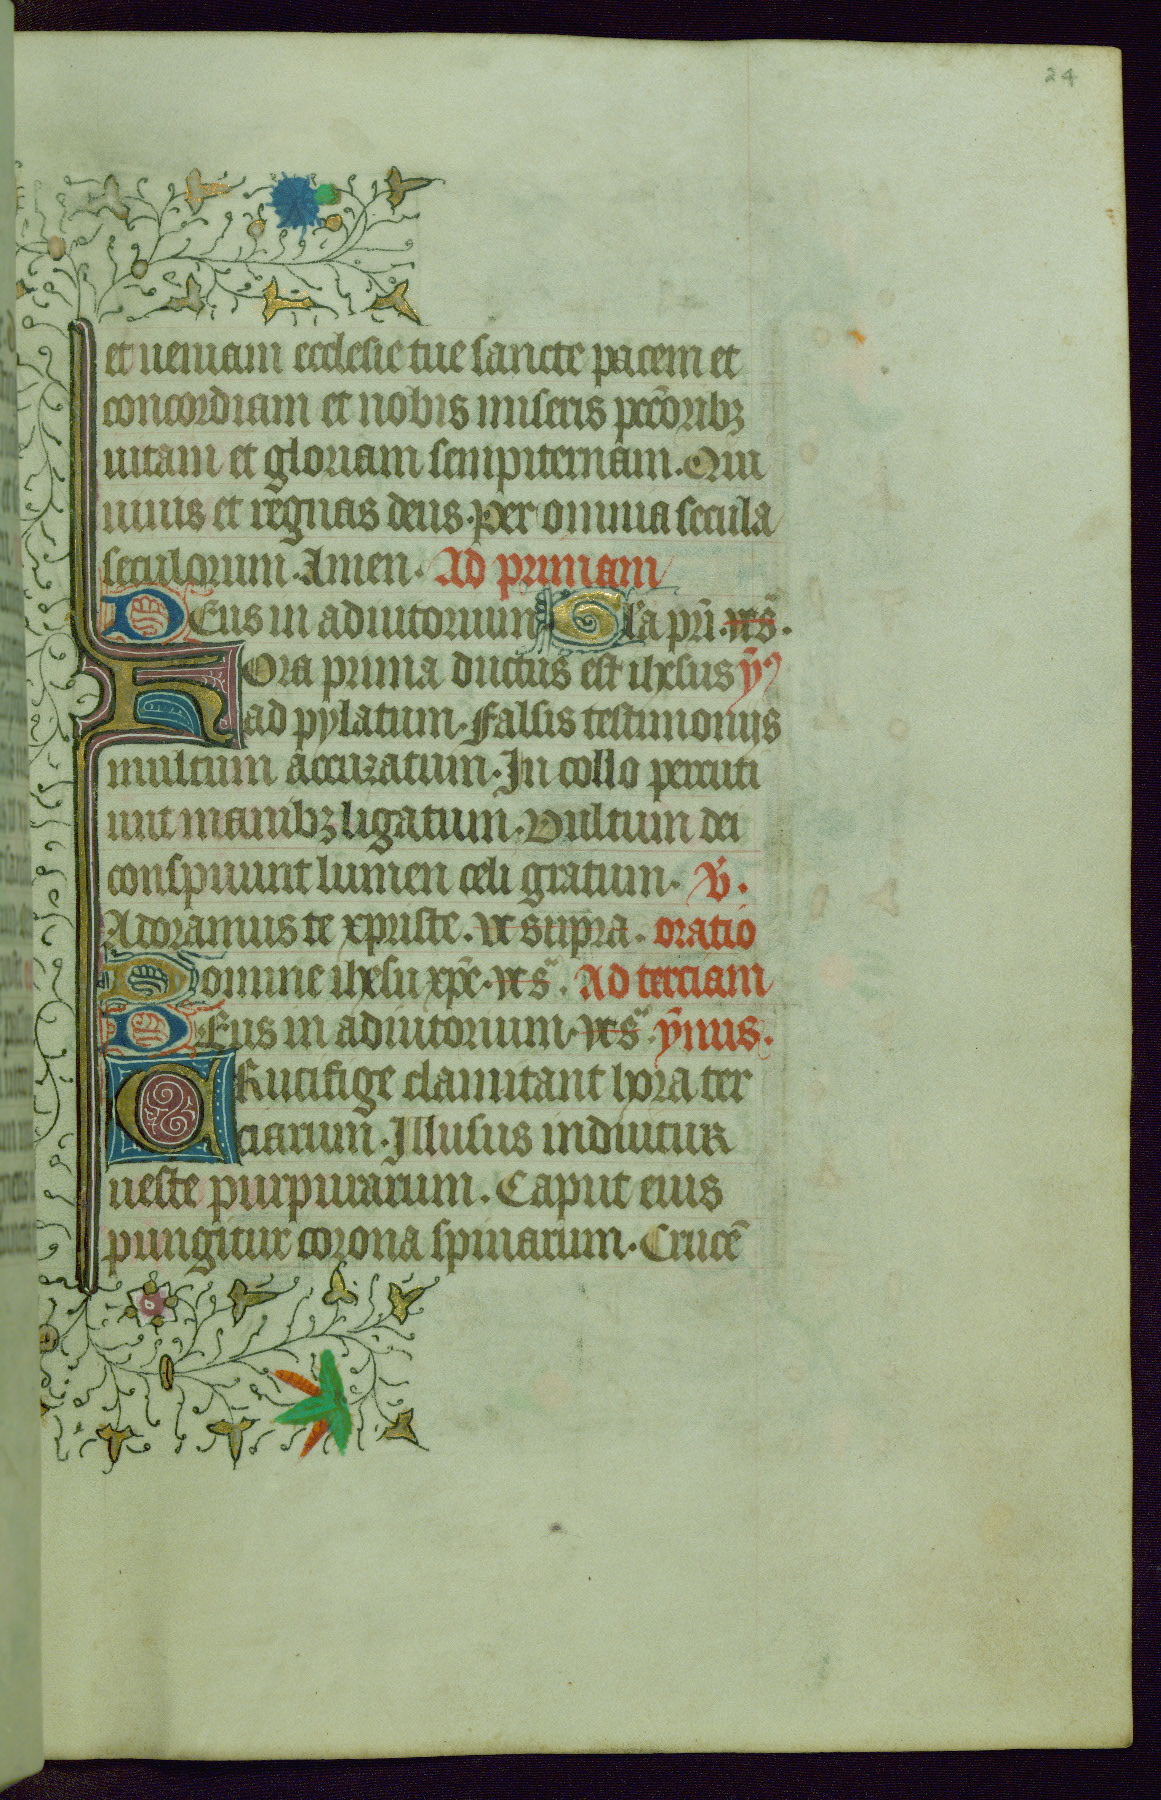 24
et ueniam ecclesie tue sancte pacem et
concordiam et nobis miseris pccoribꝫ
uitam et gloriam sempiternam. Qui
uiuis et regnas deus. per omnia secula
seculorum. Amen. Ad primam
DEus in adiutorium Gla pri. vt s.
Hora prima ductus est ihesus yꝰ
ad pylatum. falsis testimonijs
multum accuzatum. In collo percuti
unt manibꝫ ligatum. Vultum dei
conspuunt lumen celi gratum. V.
Adoramus te xpriste. vt supra. oratio
Domine ihesu xpe. vt s. Ad terciam
DEus in adiutorium. vt s. ymus.
CRucifige clamitant hora ter
ciarum. Illusus induitur
ueste purpurarum. Caput eius
pungitur corona spinarum. Crucē